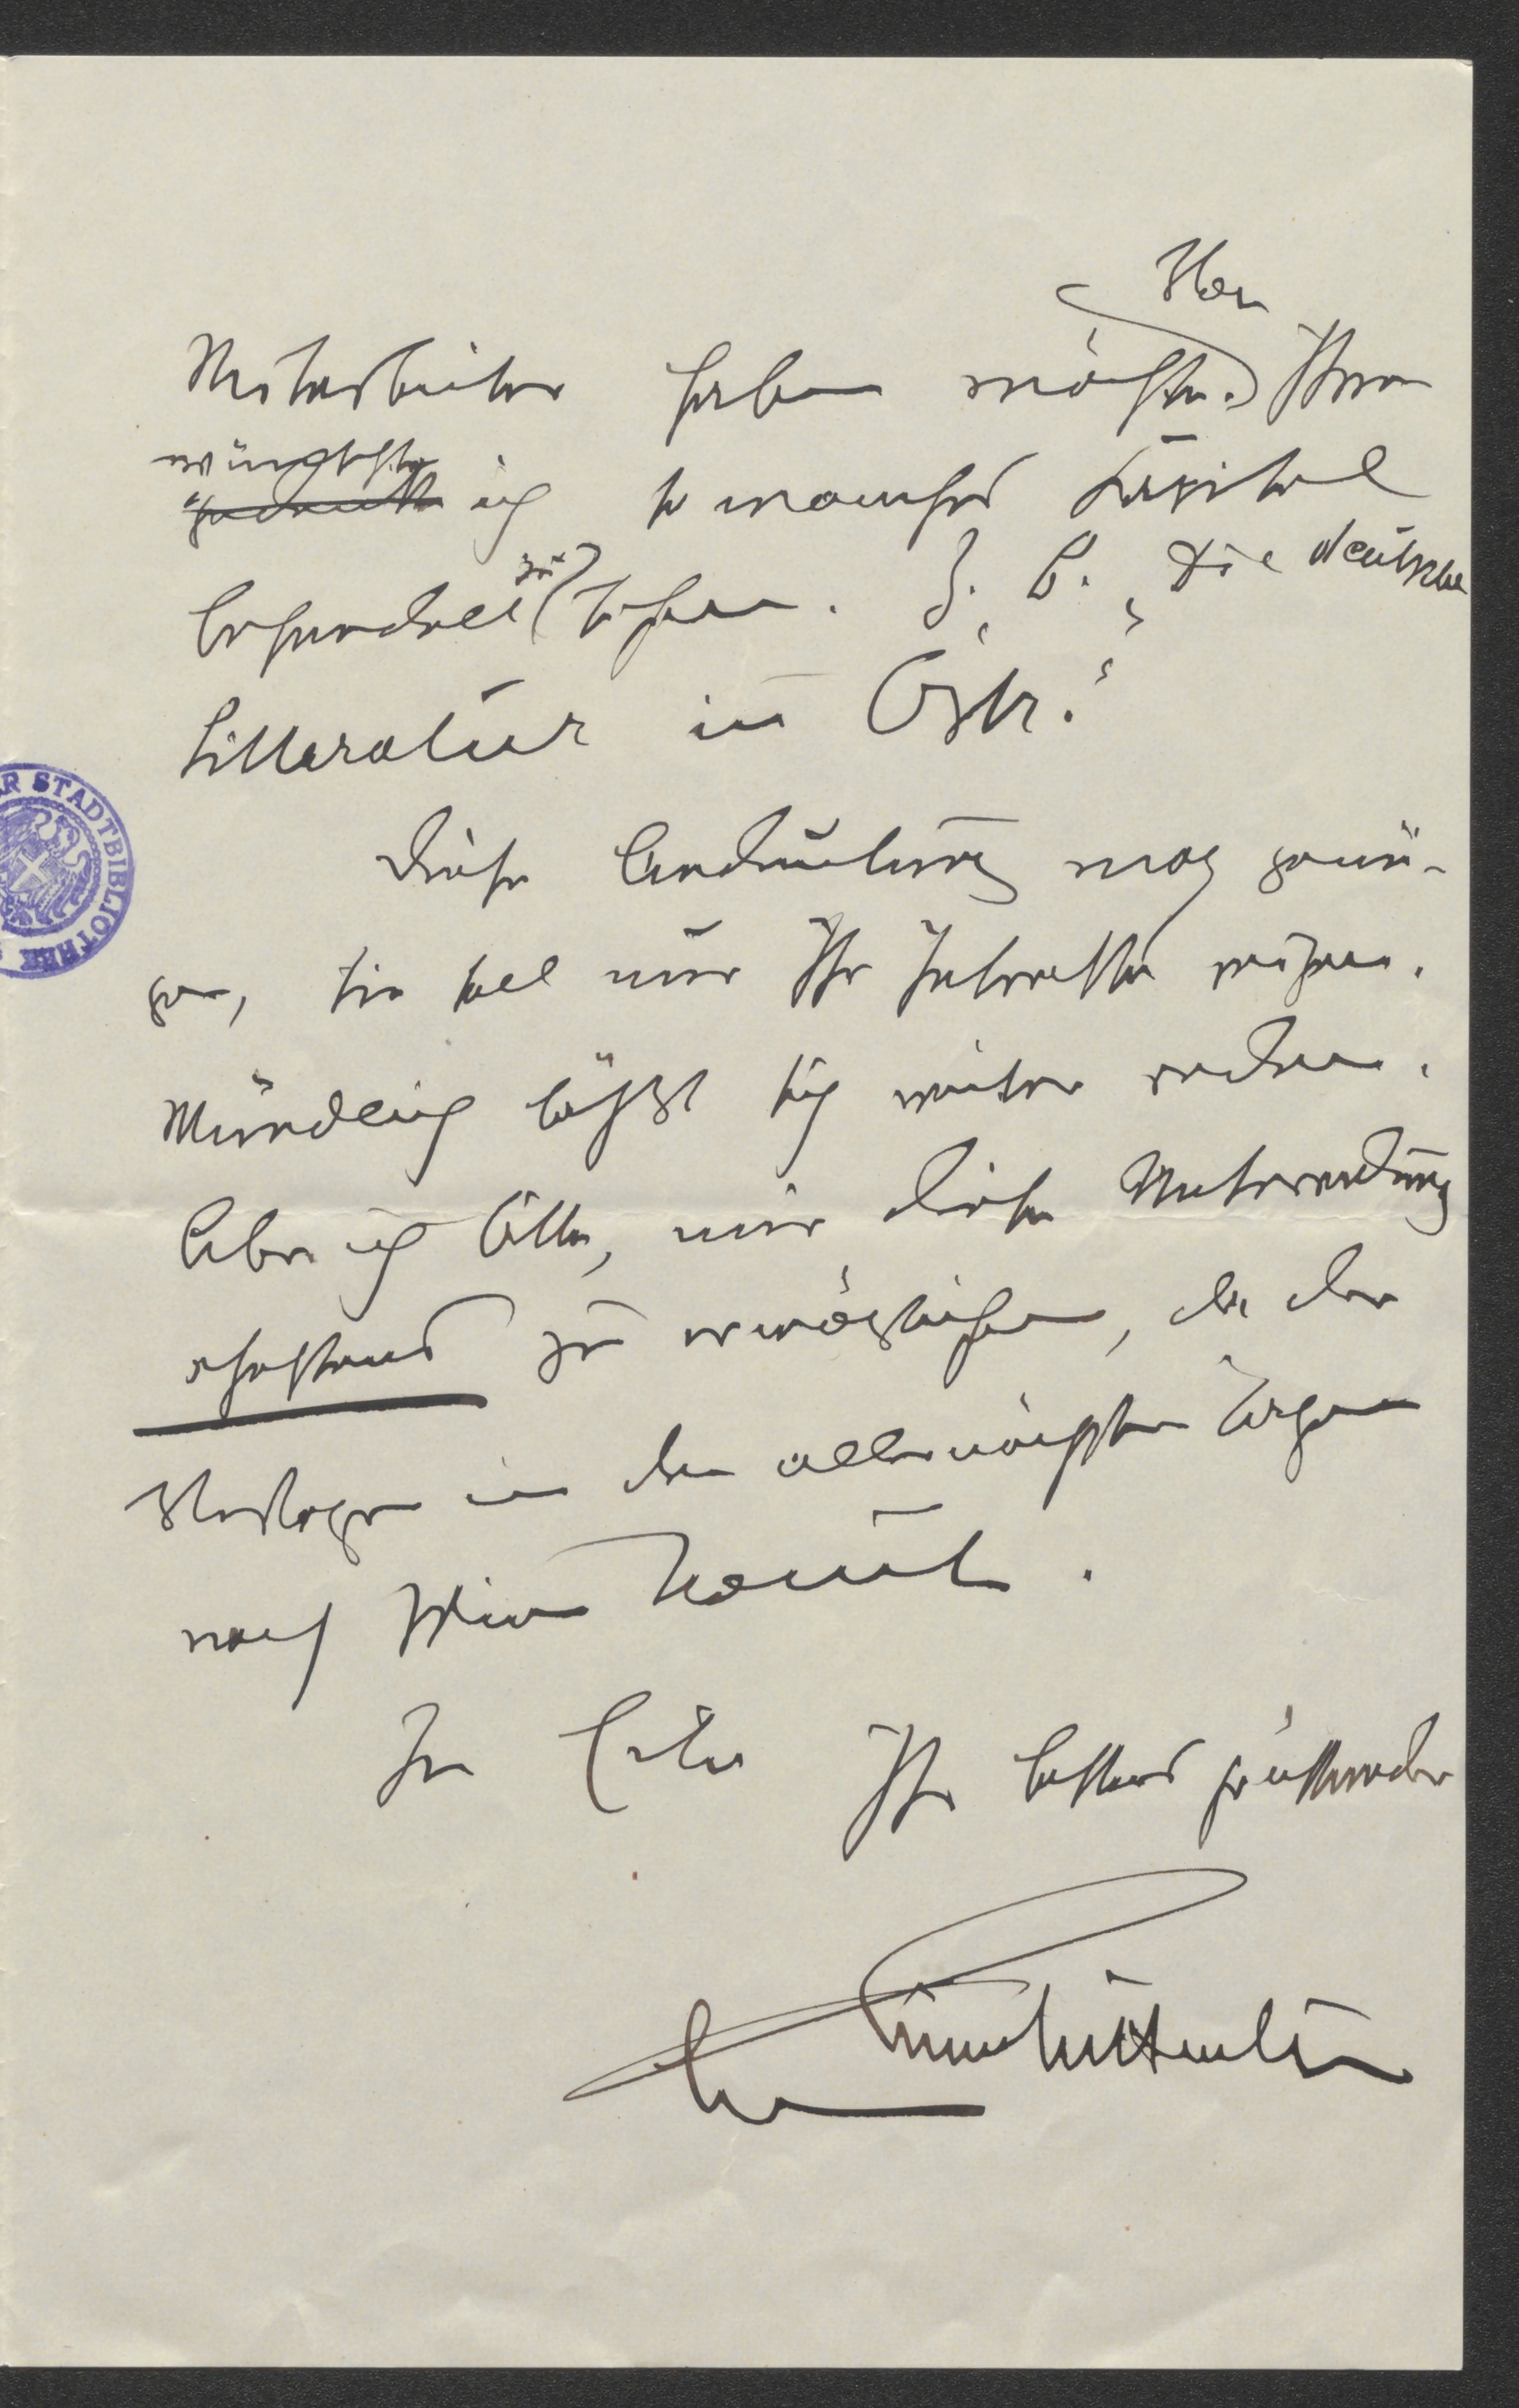 Von
Mitarbeiter haben möchte. Ihnen
wünschte
gedenke ich so manches Kapitel
behandelt zu sehen. Z. B. „Die deutsche
Litteratur in Östr."
Diese Andeutung mag genü-
gen, sie soll nur Ihr Interesse reizen.
Mündlich läßt sich weiter reden.
Aber ich bitte, mir diese Unterredung
ehestens zu ermöglichen, da der
Verleger in den allernächsten Tagen
nach Wien kommt.
In Eile Ihr bestens grüßender
STADTBIBLIOTHEK